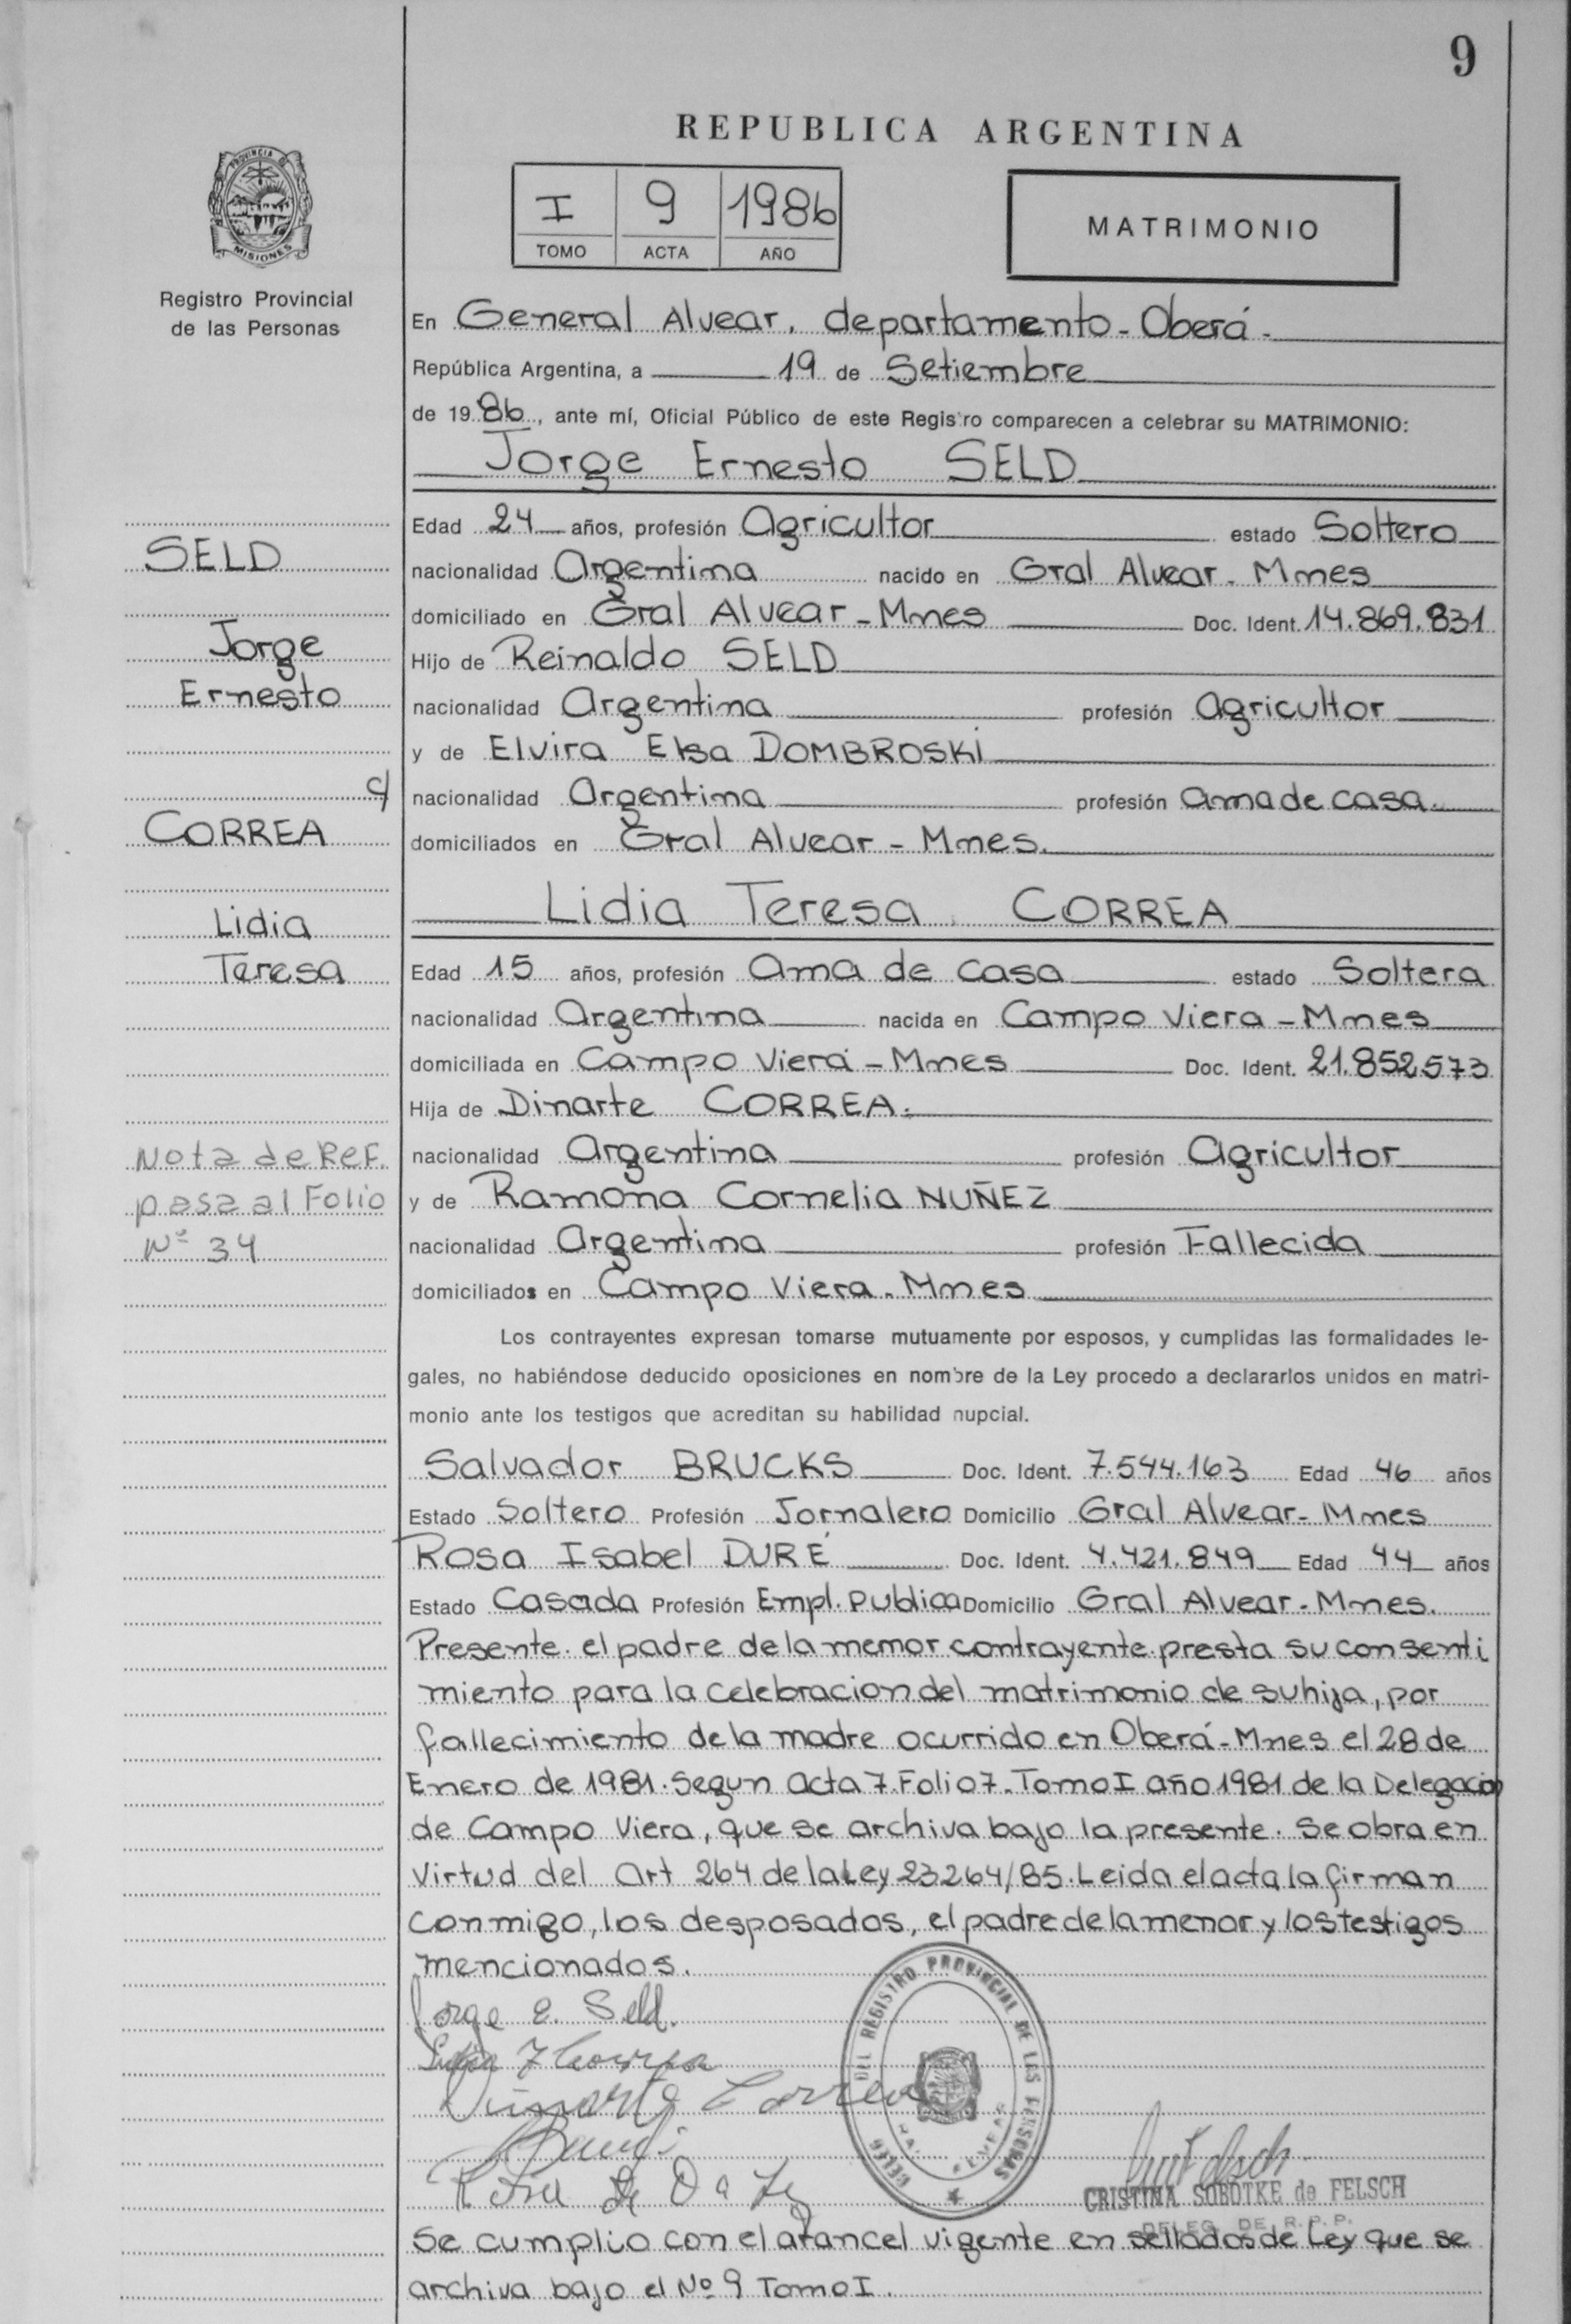 9
REPUBLICA ARGENTINA
PROVINCIA DE
MISIONES
Registro Provincial
de las Personas
I 9 1986
TOMO ACTA AÑO
MATRIMONIO
En General Alvear, departamento - Oberá -
República Argentina, a 19 de Setiembre
de 19 86, ante mí, Oficial Público de este Registro comparecen a celebrar su MATRIMONIO:
Jorge Ernesto SELD
Edad 24 años, profesión Agricultor estado Soltero
nacionalidad Argentina nacido en Gral Alvear - Mnes
domiciliado en Gral Alvear - Mnes Doc. Ident. 14.869.831
Hijo de Reinaldo SELD
nacionalidad Argentina profesión Agricultor
y de Elvira Elsa DOMBROSKI
nacionalidad Argentina profesión ama de casa.
domiciliados en Gral Alvear - Mnes.
SELD
Jorge
Ernesto
c/
CORREA
Lidia
Teresa
Lidia Teresa CORREA
Edad 15 años, profesión Ama de casa estado Soltera
nacionalidad Argentina nacida en Campo Viera - Mnes
domiciliada en Campo Viera - Mnes Doc. Ident. 21.852.573
Hija de Dinarte CORREA.
nacionalidad Argentina profesión Agricultor
y de Ramona Cornelia NUÑEZ
nacionalidad Argentina profesión Fallecida
domiciliados en Campo Viera - Mnes
Nota de Ref.
pasa al Folio
Nº 34
Los contrayentes expresan tomarse mutuamente por esposos, y cumplidas las formalidades le-
gales, no habiéndose deducido oposiciones en nombre de la Ley procedo a declararlos unidos en matri-
monio ante los testigos que acreditan su habilidad nupcial.
Salvador BRUCKS Doc. Ident. 7.544.163 Edad 46 años
Estado Soltero Profesión Jornalero Domicilio Gral Alvear - Mnes
Rosa Isabel DURÉ Doc. Ident. 4.421.849 Edad 44 años
Estado Casada Profesión Empl. Publica Domicilio Gral Alvear - Mnes.
Presente. el padre de la menor contrayente presta su consenti
miento para la celebracion del matrimonio de su hija, por
fallecimiento de la madre ocurrido en Oberá - Mnes el 28 de
Enero de 1981. Segun acta 7. Folio 7. Tomo I año 1981 de la Delegacion
de Campo Viera, que se archiva bajo la presente. Se obra en
virtud del Art 264 de la Ley 23264/85. Leida el acta, la firman
conmigo, los desposados, el padre de la menor y los testigos
mencionados.
Jorge E. Seld.
DEL REGISTRO PROVINCIAL DE LAS PERSONAS
Dinarte Correa
CRISTINA SOBOTKE de FELSCH
DELEG. DE R.P.P.
Se cumplio con el arancel vigente en sellados de Ley que se
archiva bajo el Nº 9 Tomo I.